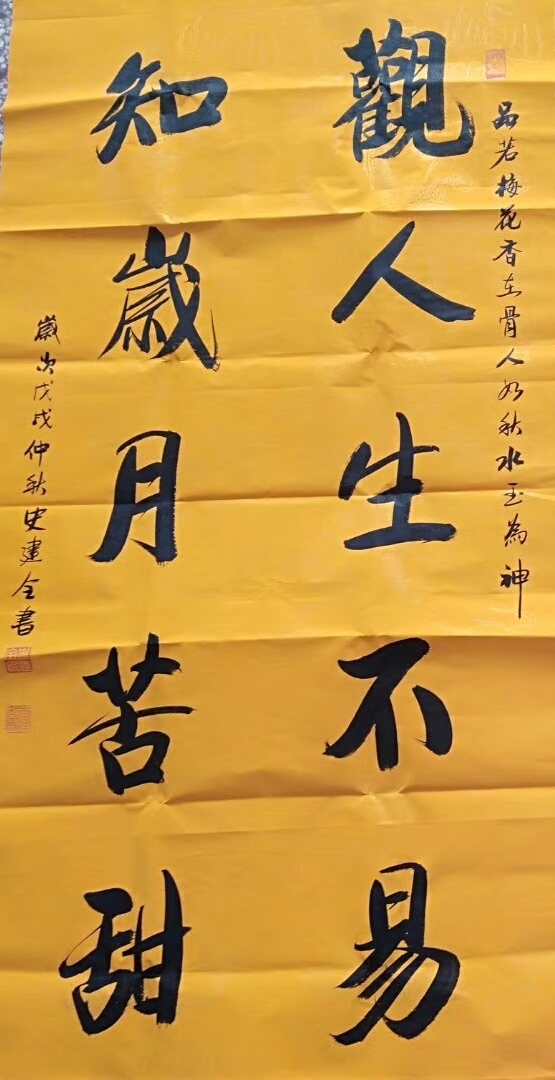 品若梅花香在骨人如秋水玉為神
觀人生不易
知歲月苦甜
歲次戊戌仲秋史建全書